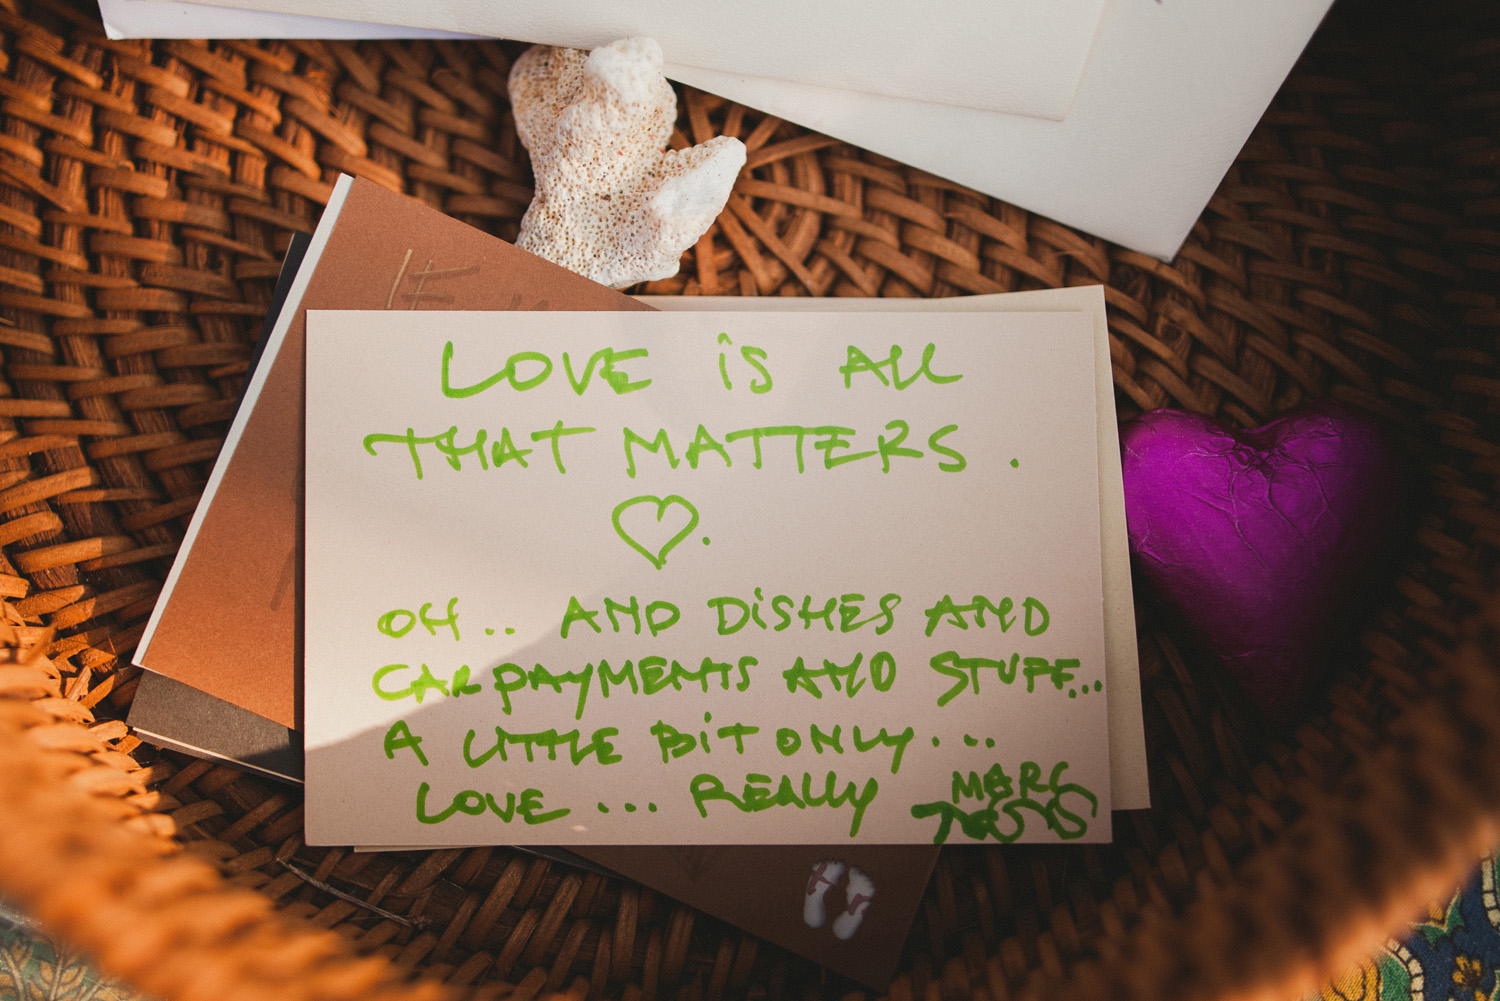 LOVE is ALL
THAT MATTERS.
OH.. AND DiSHES AND
CAR PAYMENTS AND STUFF...
A LITTLE BiT ONLY....
LOVE... REALLY
MARC